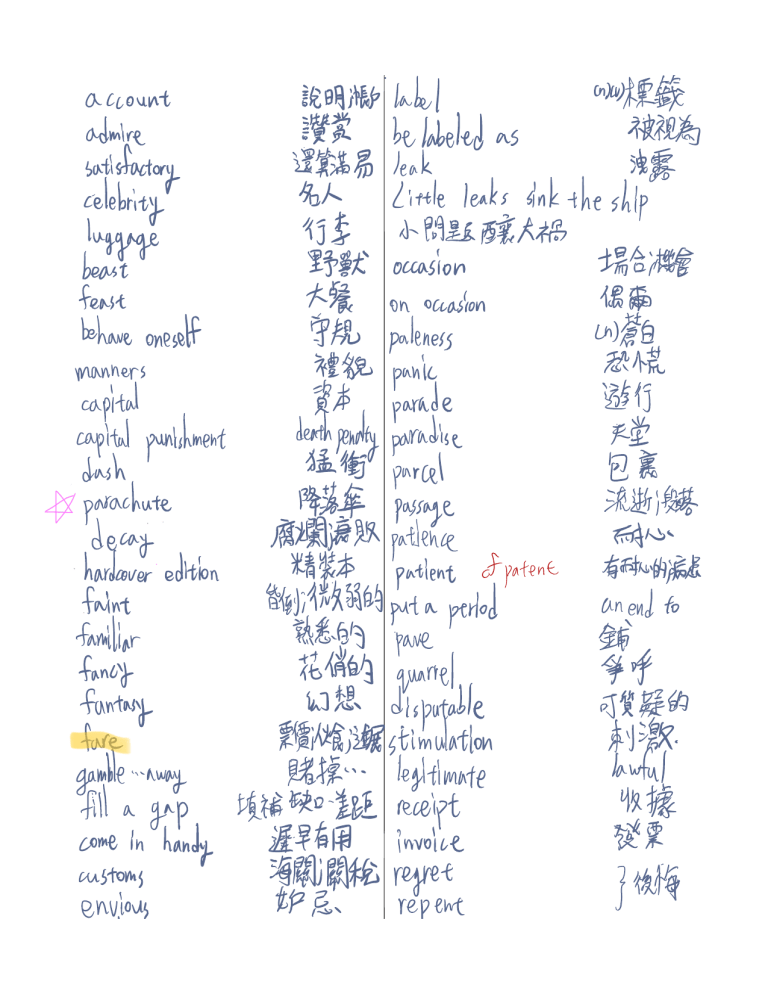 account 說明;帳戶
admire 讚賞
satisfactory 還算滿易
celebrity 名人
luggage 行李
beast 野獸
feast 大餐
behave oneself 守規
manners 禮貌
capital 資本
capital punishment death penalty
dash 猛衝
parachute 降落傘
decay 腐爛;衰敗
hardcover edition 精裝本
faint 昏倒;微弱的
familiar 熟悉的
fancy 花俏的
fantasy 幻想
fare 票價;伙食;進展
gamble…away 賭掉…
fill a gap 填補缺口、差距
come in handy 遲早有用
customs 海關;關稅
envious 妒忌
label (n)(v)標籤
be labeled as 被視為
leak 洩露
Little leaks sink the ship
小問題釀大禍
occasion 場合;機會
on occasion 偶爾
paleness (n)蒼白
panic 恐慌
parade 遊行
paradise 天堂
parcel 包裹
passage 流逝;段落
patience 耐心
patient patent 有耐心的;病患
put a period an end to
pave 鋪
quarrel 爭呼
disputable 可質疑的
stimulation 刺激
legitimate lawful
receipt 收據
invoice 發票
regret } 後悔
repent